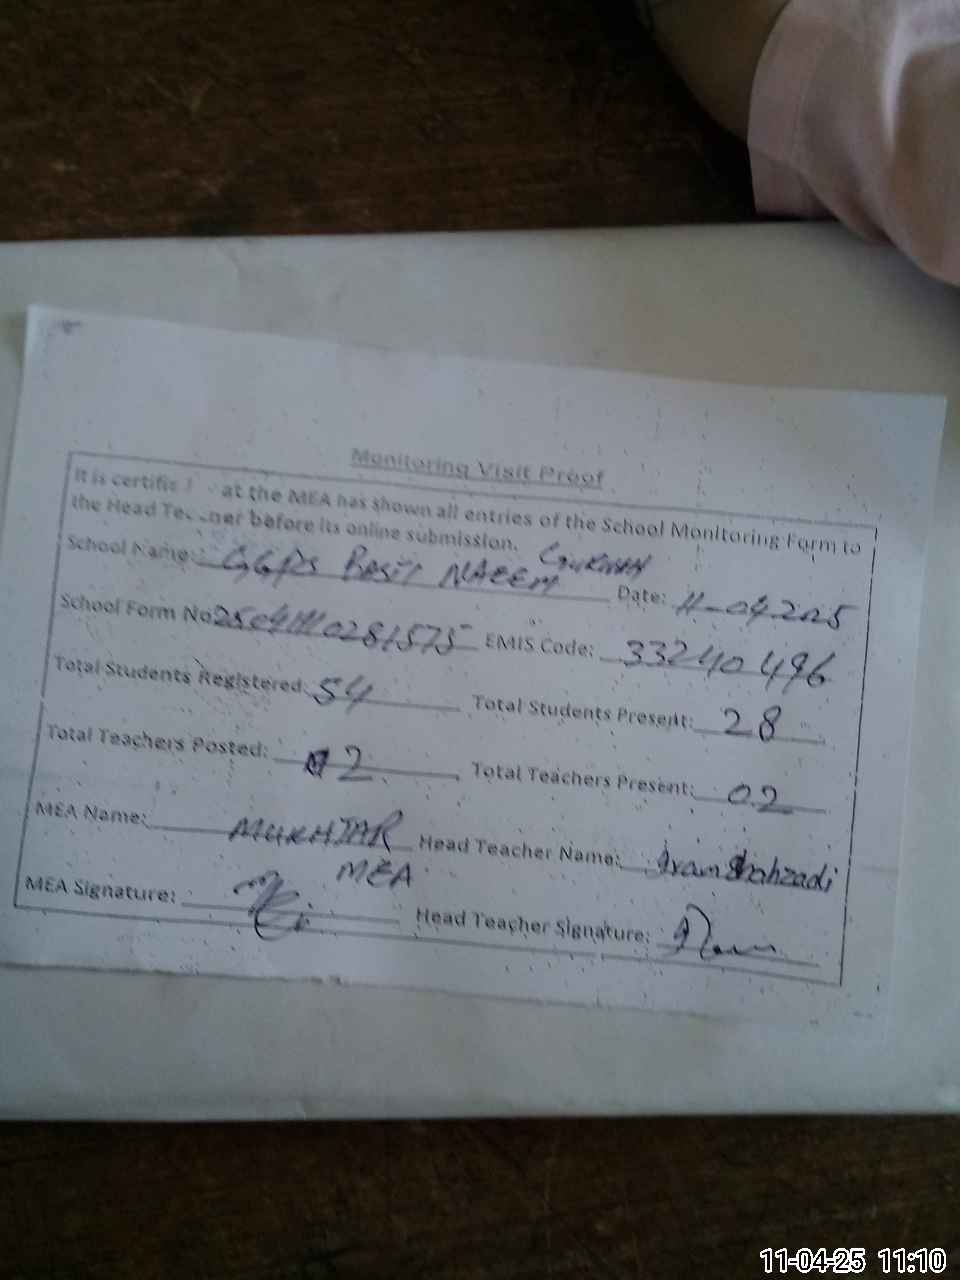 Monitoring Visit Proof
It is certifie at the MEA has shown all entries of the School Monitoring Form to
the Head Teacher before its online submission.
School Name: GGPS Basti NAZEEM Date: 11-04-2025
School Form No 25041110281575 EMIS Code: 33240496
Total Students Registered: 54 Total Students Present: 28
Total Teachers Posted: 2 Total Teachers Present: 02
MEA Name: MUKHTAR Head Teacher Name: Iram Shahzadi
MEA
MEA Signature: Head Teacher Signature:
11-04-25 11:10